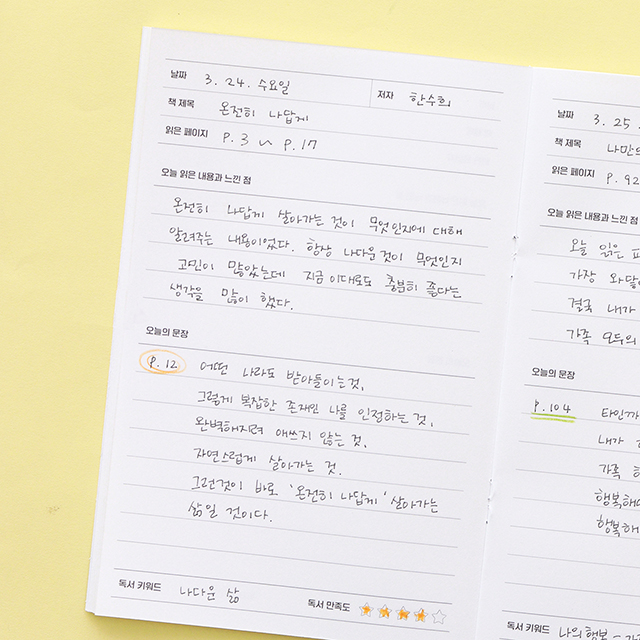 날짜 3. 24. 수요일 저자 한수희
책 제목 온전히 나답게
읽은 페이지 P. 3 ~ P. 17
오늘 읽은 내용과 느낀 점
온전히 나답게 살아가는 것이 무엇인지에 대해
알려주는 내용이었다. 항상 나다운 것이 무엇인지
고민이 많았는데 지금 이대로도 충분히 좋다는
생각을 많이 했다.
오늘의 문장
P. 12 어떤 나라도 받아들이는 것,
그렇게 복잡한 존재인 나를 인정하는 것,
완벽해지려 애쓰지 않는 것,
자연스럽게 살아가는 것.
그런것이 바로 '온전히 나답게' 살아가는
삶일 것이다.
독서 키워드 나다운 삶 독서 만족도
날짜 3. 25.
책 제목
읽은 페이지 P. 92
오늘 읽은 내용과 느낀 점
오늘 읽은
가장
결국 내가
가족 모두의
오늘의 문장
P. 104
내가
가족
행복해
행복해
독서 키워드 나의 행복